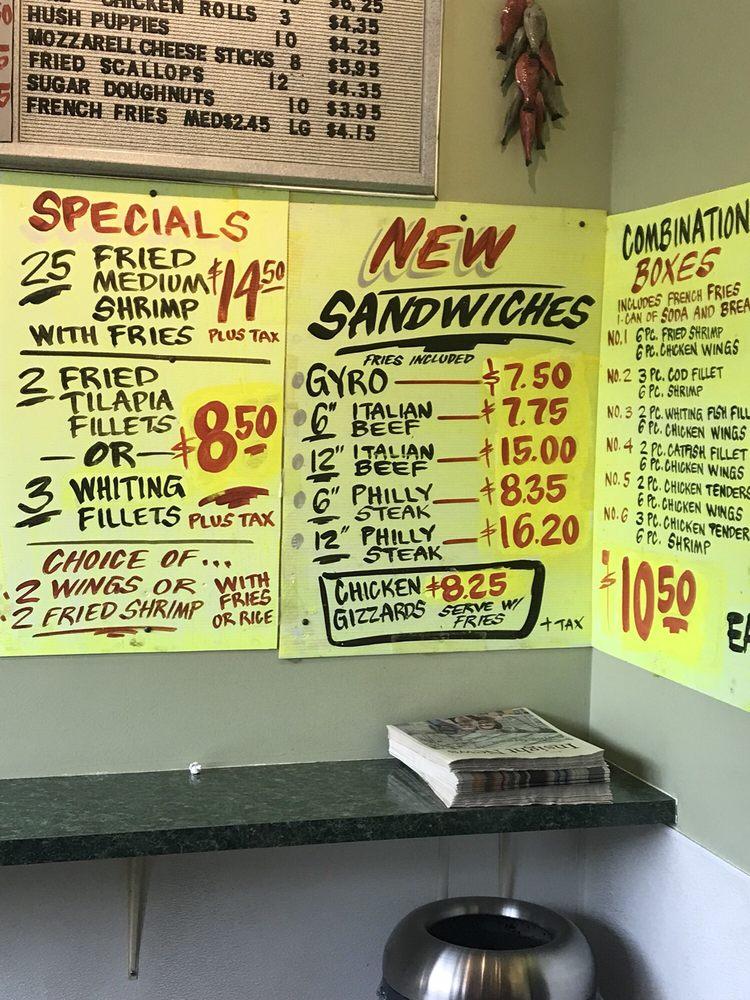 $6.25
CHICKEN ROLLS 3 $4.35
HUSH PUPPIES 10 $4.25
MOZZARELL CHEESE STICKS 8 $5.95
FRIED SCALLOPS 12 $4.35
SUGAR DOUGHNUTS 10 $3.95
FRENCH FRIES MED$2.45 LG $4.15
SPECIALS
25 FRIED
MEDIUM $14.50
SHRIMP
WITH FRIES PLUS TAX
2 FRIED
TILAPIA
FILLETS $8.50
-OR-
3 WHITING
FILLETS PLUS TAX
CHOICE OF...
.2 WINGS OR WITH
.2 FRIED SHRIMP FRIES
OR RICE
NEW
SANDWICHES
FRIES INCLUDED
GYRO $7.50
6" ITALIAN BEEF $7.75
12" ITALIAN BEEF $15.00
6" PHILLY STEAK $8.35
12" PHILLY STEAK $16.20
CHICKEN $8.25
GIZZARDS SERVE W/
FRIES
+TAX
COMBINATION
BOXES
INCLUDES FRENCH FRIES
1-CAN OF SODA AND BREA
NO.1 6 PC. FRIED SHRIMP
6 PC. CHICKEN WINGS
NO.2 3 PC. COD FILLET
6 PC. SHRIMP
NO.3 2 PC. WHITING FISH FILL
6 PC. CHICKEN WINGS
NO.4 2 PC. CATFISH FILLET
6 PC. CHICKEN WINGS
NO.5 2 PC. CHICKEN TENDERS
6 PC. CHICKEN WINGS
NO.6 3 PC. CHICKEN TENDER
6 PC. SHRIMP
$10.50
EA
Insight News